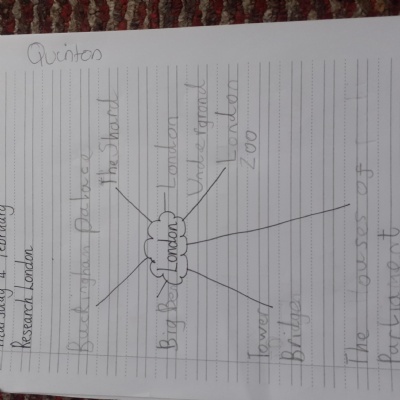 Quinton
Thursday 4 February
Research London
Buckingham palace
The Shard
Big Ben
London
London
Underground
London
Zoo
Tower
Bridge
The houses of
Parliament